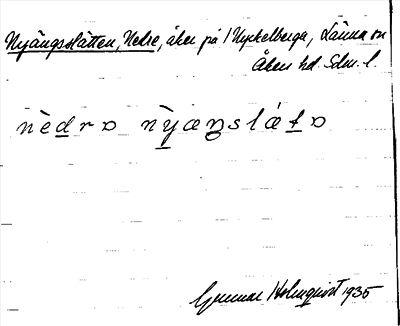 Nyängsslätten, Nedre, åker på 1 Nyckelberga, Länna sn
Åkers hd. Sdm. l.
nèdrɔ nỳæŋslætɔ
Gunnar Holmqvist 1935